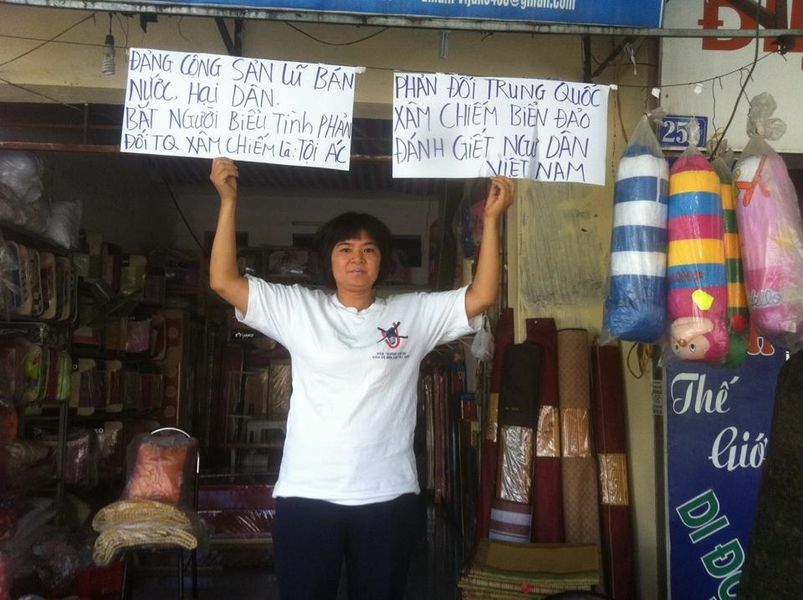 @gmail.com
ĐẢNG CỘNG SẢN LŨ BÁN
NƯỚC, HẠI DÂN.
BẮT NGƯỜI BIỂU TÌNH PHẢN
ĐỐI TQ XÂM CHIẾM là TỘI ÁC
PHẢN ĐỐI TRUNG QUỐC
XÂM CHIẾM BIỂN ĐẢO
ĐÁNH GIẾT NGƯ DÂN
VIỆT NAM
25
Thế
Giới
DI ĐỘ